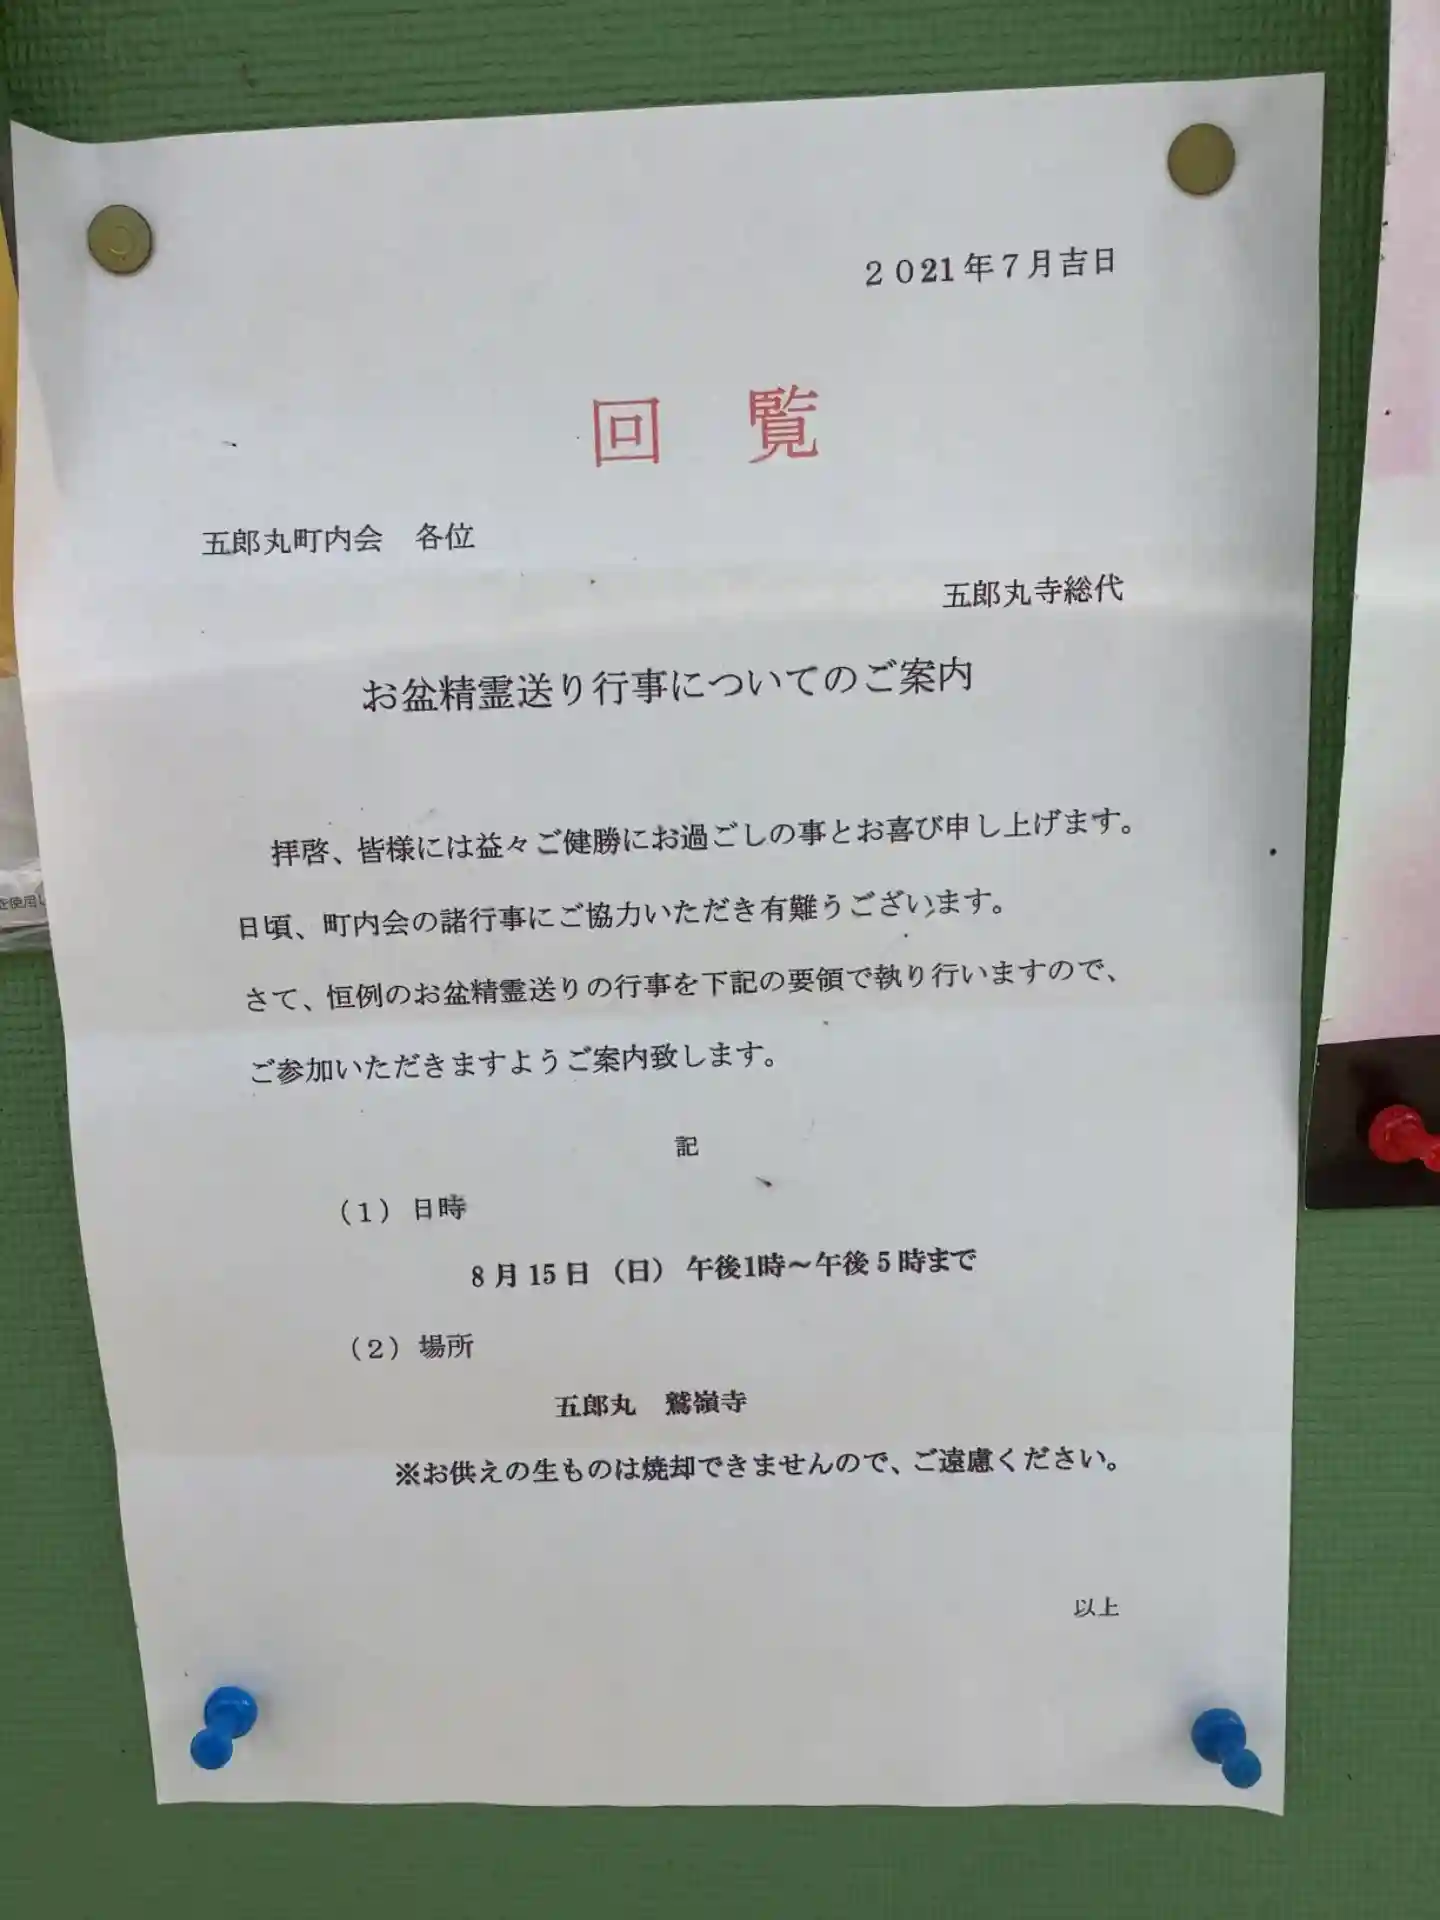 ２０21年７月吉日
回　覧
五郎丸町内会　各位
五郎丸寺総代
お盆精霊送り行事についてのご案内
拝啓、皆様には益々ご健勝にお過ごしの事とお喜び申し上げます。
日頃、町内会の諸行事にご協力いただき有難うございます。
さて、恒例のお盆精霊送りの行事を下記の要領で執り行いますので、
ご参加いただきますようご案内致します。
記
（１）日時
８月15日（日）午後1時～午後５時まで
（２）場所
五郎丸　鷲嶺寺
※お供えの生ものは焼却できませんので、ご遠慮ください。
以上
を使用し